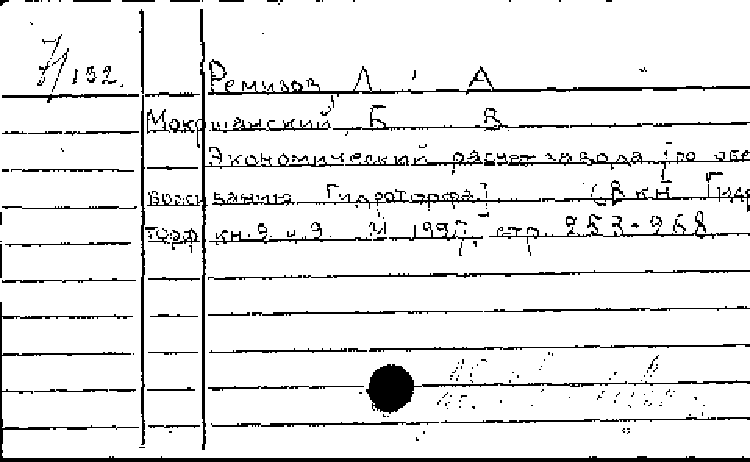 7/152.
Ремизов Л. А
Мокршанский, Б В
Экономический расчет завода [по обез
воживанию Гидроторфа] (В кн Гидр
торф кн. 2 и 3 М 1927, стр. 253-258